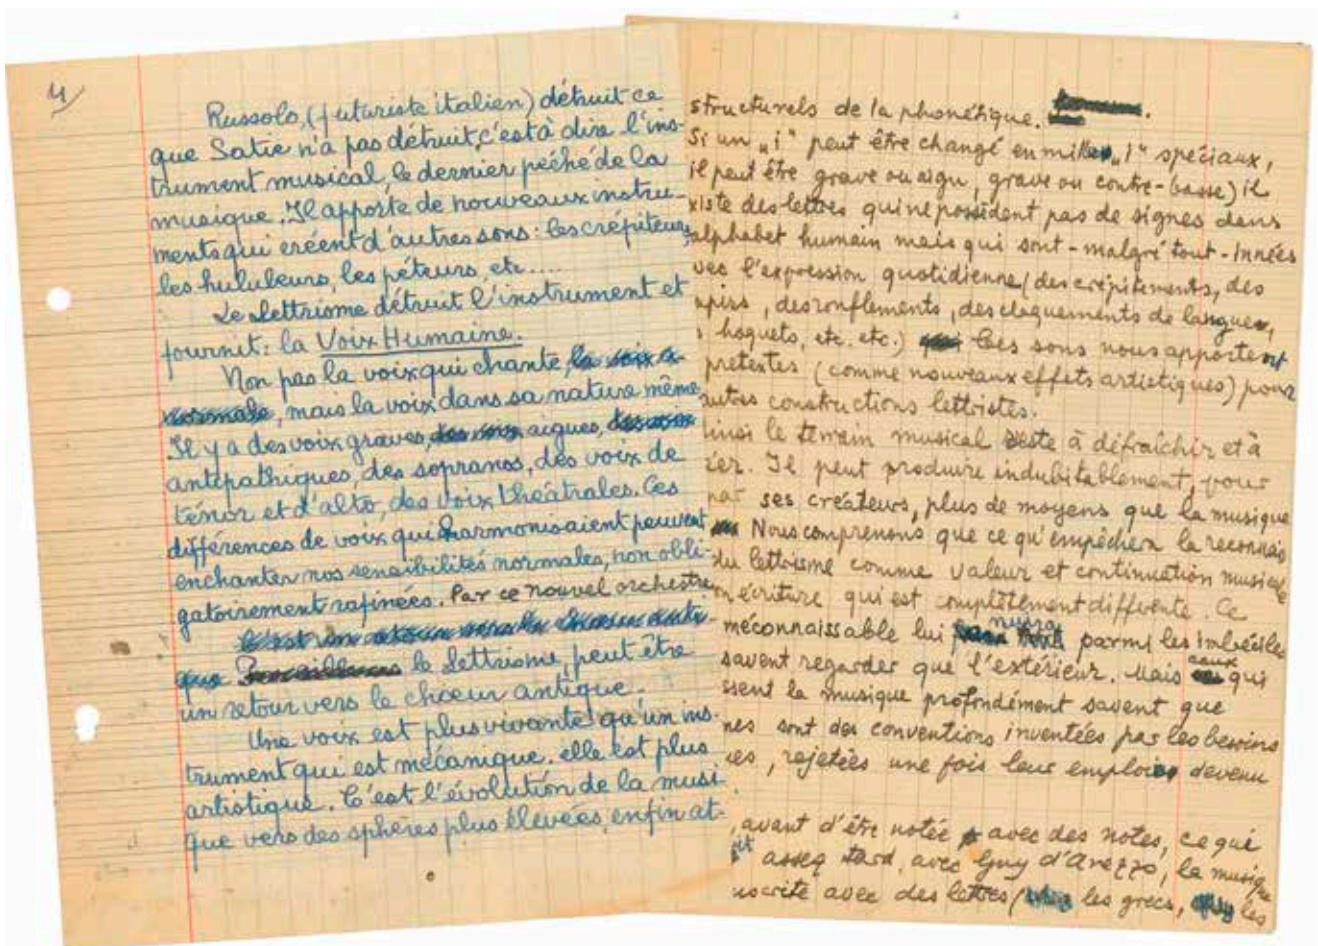 4/
Russolo, (futuriste italien) détruit ce
que Satie n'a pas détruit, c'est à dire l'ins-
trument musical, le dernier péché de la
musique. Il apporte de nouveaux instru-
ments qui créent d'autres sons : les crépiteurs,
les hululeurs, les péteurs, etc....
Le Lettrisme détruit l'instrument et
fournit : la Voix Humaine.
Non pas la voix qui chante, la voix
normale, mais la voix dans sa nature même
Il y a des voix graves, des voix aigues, des voix
antipathiques, des sopranos, des voix de
ténor et d'alto, des voix théâtrales. Ces
différences de voix qui harmonisaient peuvent
enchanter nos sensibilités normales, non obli-
gatoirement rafinées. Par ce nouvel orchestre
C'est un
que le Lettrisme, peut être
un retour vers le chœur antique.
Une voix est plus vivante qu'un ins-
trument qui est mécanique. elle est plus
artistique. C'est l'évolution de la musi-
que vers des sphères plus élevées, enfin at-
structurels de la phonétique.
Si un „i" peut être changé en mille „i" spéciaux,
il peut être grave ou aigu, grave ou contre-basse) il
xiste des lettres qui ne possèdent pas de signes dans
alphabet humain mais qui sont - malgré tout - innées
vec l'expression quotidienne (des crépitements, des
upirs, des ronflements, des claquements de langues,
s hoquets, etc. etc.) Ces sons nous apportent
prétextes (comme nouveaux effets artistiques) pour
autres constructions lettristes.
Ainsi le terrain musical reste à défraîchir et à
éer. Il peut produire indubitablement, pour
par ses créateurs, plus de moyens que la musique
Nous comprenons que ce qu'empêchera la reconnais
du lettrisme comme valeur et continuation musicale
on écriture qui est complètement diffente. Ce
méconnaissable lui nuira parmi les imbéciles
savent regarder que l'extérieur. Mais ceux qui
ssent la musique profondément savent que
nes sont des conventions inventées par les besoins
ues, rejetées une fois leur emploi devenu
, avant d'être notée avec des notes, ce qui
it assez tard, avec Guy d'Arezzo, la musique
uscrite avec des lettres ( les grecs, les